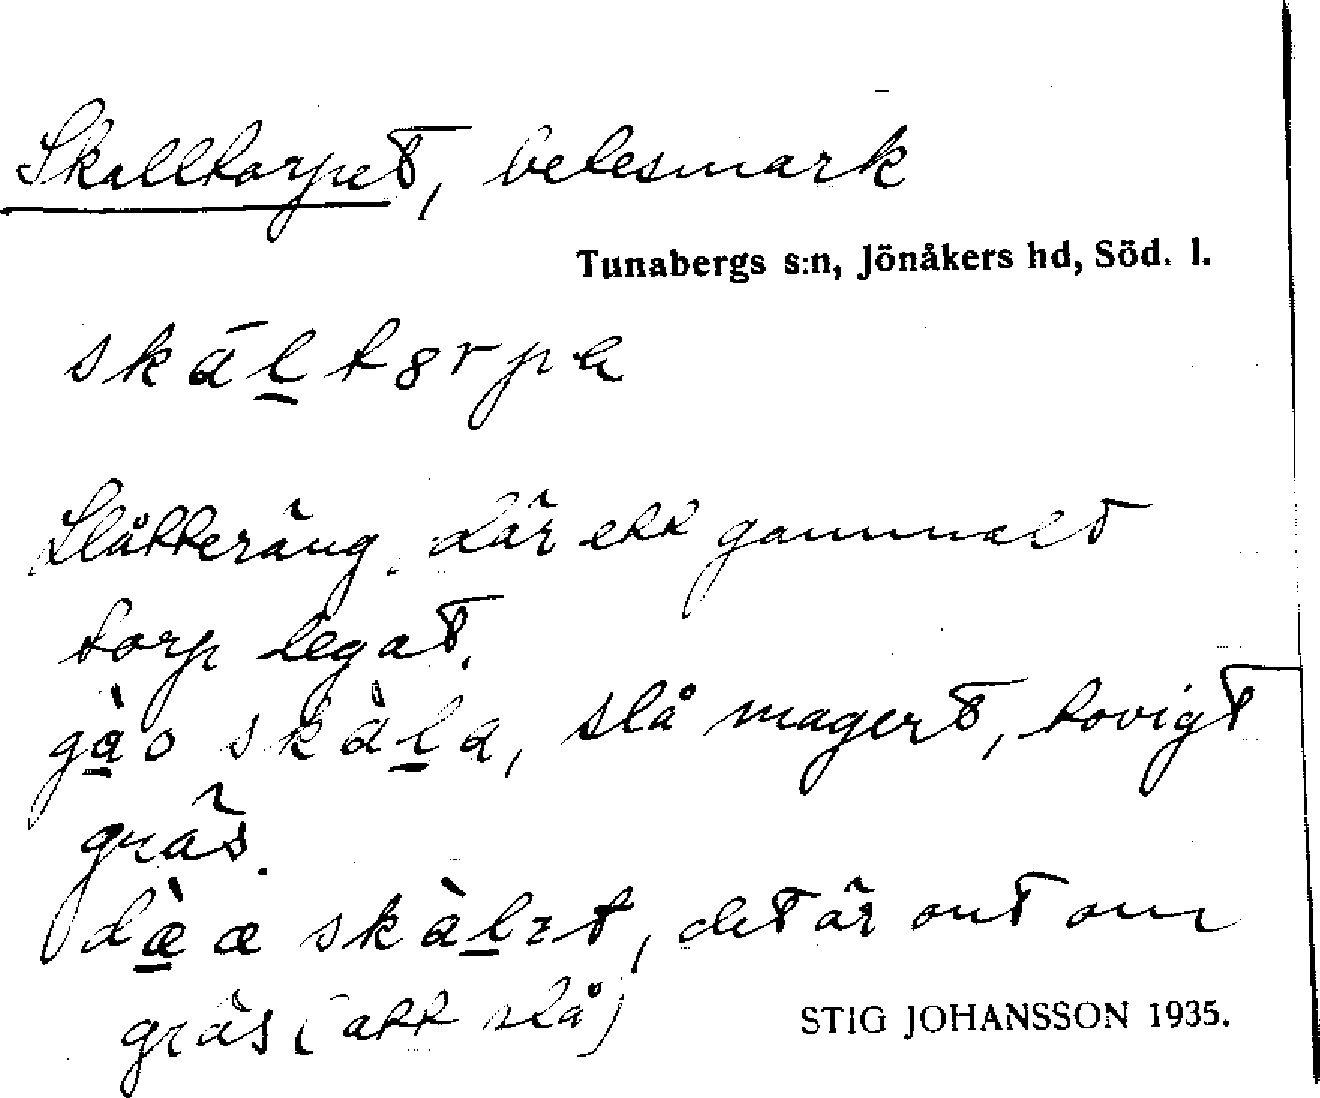 Skalltorpet, betesmark
Tunabergs s:n, Jönåkers hd, Söd. l.
skāl̲tɞrpa
Slåtteräng, där ett gammalt
torp legat.
gà̲o skàl̲a, slå magert, tovigt
gräs.
dæ̲̀ æ skàl̲ɪt, det är ont om
gräs (att slå)
STIG JOHANSSON 1935.